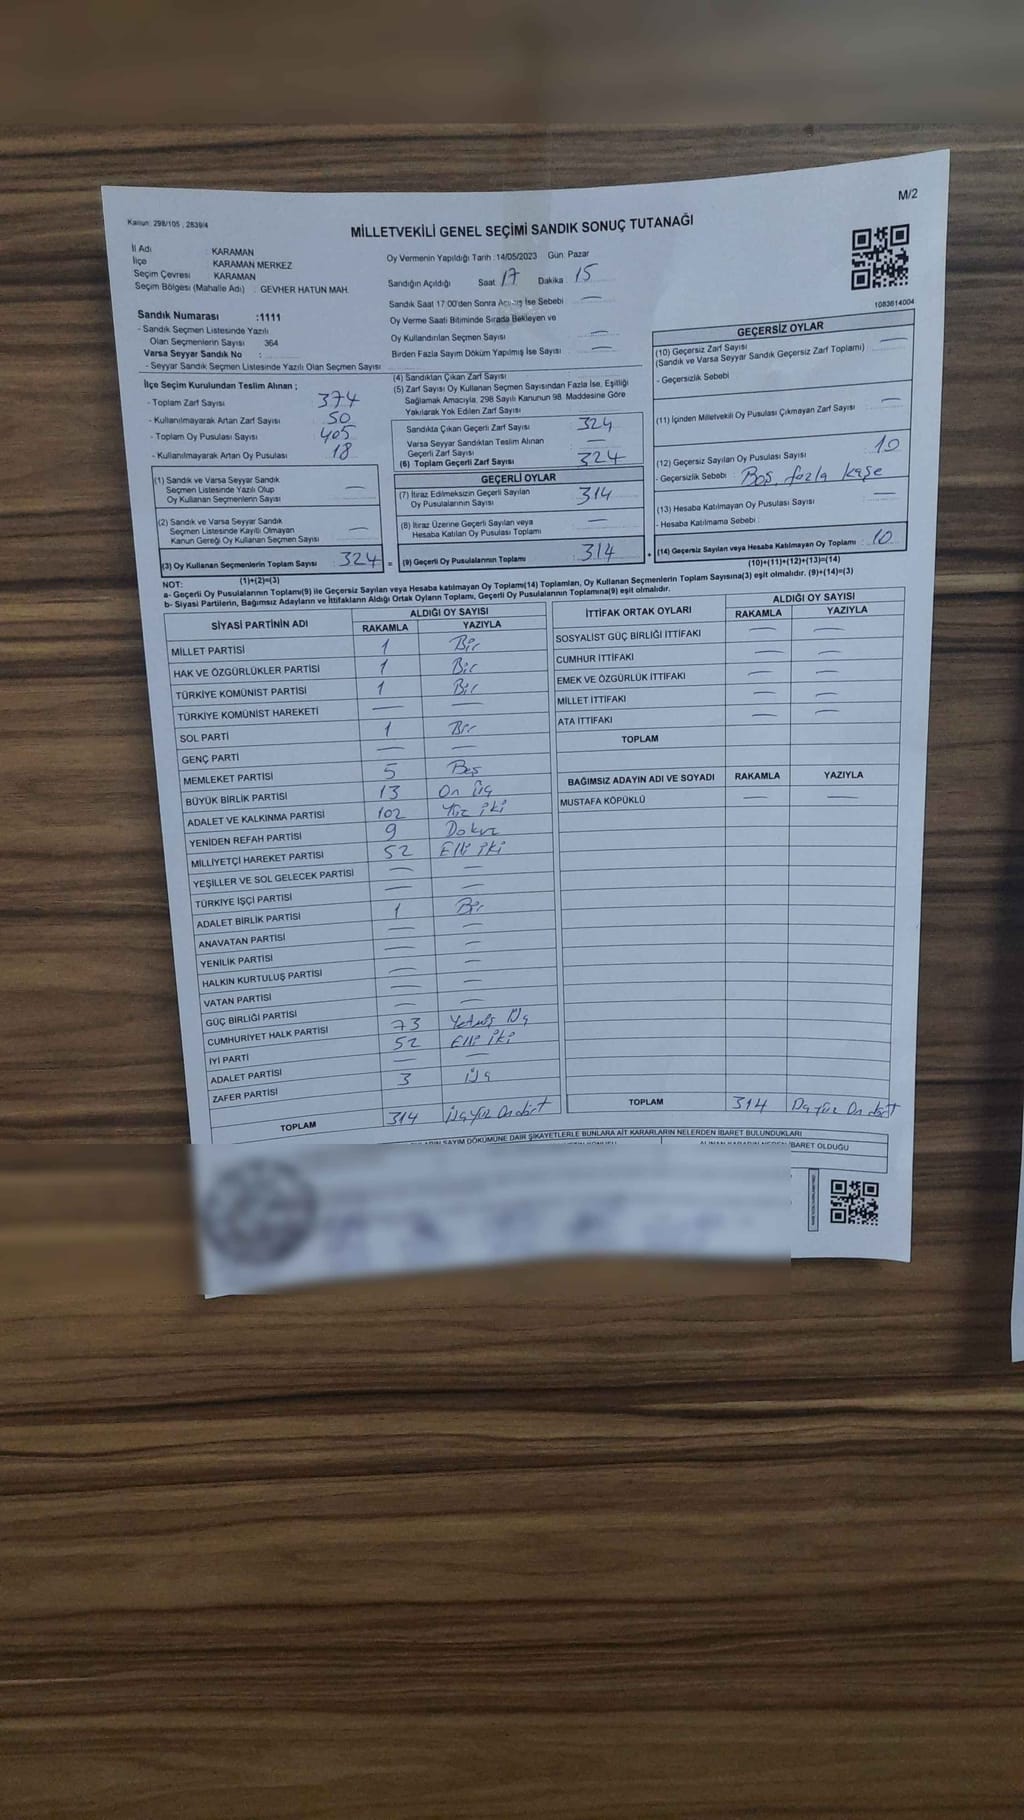 M/2
Kanun: 298/105 , 2839/4
MİLLETVEKİLİ GENEL SEÇİMİ SANDIK SONUÇ TUTANAĞI
İl Adı : KARAMAN
İlçe KARAMAN MERKEZ
Seçim Çevresi KARAMAN
Seçim Bölgesi (Mahalle Adı) : GEVHER HATUN MAH.
Sandık Numarası :1111
- Sandık Seçmen Listesinde Yazılı
Olan Seçmenlerin Sayısı 364
Varsa Seyyar Sandık No :
- Seyyar Sandık Seçmen Listesinde Yazılı Olan Seçmen Sayısı
Oy Vermenin Yapıldığı Tarih : 14/05/2023 Gün Pazar
Sandığın Açıldığı Saat 17 Dakika : 15
Sandık Saat 17:00'den Sonra Açılmış İse Sebebi —
Oy Verme Saati Bitiminde Sırada Bekleyen ve
Oy Kullandırılan Seçmen Sayısı —
Birden Fazla Sayım Döküm Yapılmış İse Sayısı —
1083614004
İlçe Seçim Kurulundan Teslim Alınan ;
- Toplam Zarf Sayısı 374
- Kullanılmayarak Artan Zarf Sayısı 50
- Toplam Oy Pusulası Sayısı 405
- Kullanılmayarak Artan Oy Pusulası 18
(1) Sandık ve Varsa Seyyar Sandık
Seçmen Listesinde Yazılı Olup
Oy Kullanan Seçmenlerin Sayısı —
(2) Sandık ve Varsa Seyyar Sandık
Seçmen Listesinde Kayıtlı Olmayan
Kanun Gereği Oy Kullanan Seçmen Sayısı —
(3) Oy Kullanan Seçmenlerin Toplam Sayısı 324
(1)+(2)=(3)
(4) Sandıktan Çıkan Zarf Sayısı
(5) Zarf Sayısı Oy Kullanan Seçmen Sayısından Fazla İse, Eşitliği
Sağlamak Amacıyla, 298 Sayılı Kanunun 98. Maddesine Göre
Yakılarak Yok Edilen Zarf Sayısı
Sandıkta Çıkan Geçerli Zarf Sayısı 324
Varsa Seyyar Sandıktan Teslim Alınan
Geçerli Zarf Sayısı —
(6) Toplam Geçerli Zarf Sayısı 324
GEÇERLİ OYLAR
(7) İtiraz Edilmeksizin Geçerli Sayılan
Oy Pusulalarının Sayısı 314
(8) İtiraz Üzerine Geçerli Sayılan veya
Hesaba Katılan Oy Pusulası Toplamı —
= (9) Geçerli Oy Pusulalarının Toplamı 314
GEÇERSİZ OYLAR
(10) Geçersiz Zarf Sayısı —
(Sandık ve Varsa Seyyar Sandık Geçersiz Zarf Toplamı)
- Geçersizlik Sebebi
(11) İçinden Milletvekili Oy Pusulası Çıkmayan Zarf Sayısı —
(12) Geçersiz Sayılan Oy Pusulası Sayısı 10
- Geçersizlik Sebebi : Boş, fazla kaşe
(13) Hesaba Katılmayan Oy Pusulası Sayısı —
- Hesaba Katılmama Sebebi :
+ (14) Geçersiz Sayılan veya Hesaba Katılmayan Oy Toplamı : 10
(10)+(11)+(12)+(13)=(14)
NOT:
a- Geçerli Oy Pusulalarının Toplamı(9) ile Geçersiz Sayılan veya Hesaba katılmayan Oy Toplamı(14) Toplamları, Oy Kullanan Seçmenlerin Toplam Sayısına(3) eşit olmalıdır. (9)+(14)=(3)
b- Siyasi Partilerin, Bağımsız Adayların ve İttifakların Aldığı Ortak Oyların Toplamı, Geçerli Oy Pusulalarının Toplamına(9) eşit olmalıdır.
SİYASİ PARTİNİN ADI ALDIĞI OY SAYISI
RAKAMLA YAZIYLA
MİLLET PARTİSİ 1 Bir
HAK VE ÖZGÜRLÜKLER PARTİSİ 1 Bir
TÜRKİYE KOMÜNİST PARTİSİ 1 Bir
TÜRKİYE KOMÜNİST HAREKETİ — —
SOL PARTİ 1 Bir
GENÇ PARTİ — —
MEMLEKET PARTİSİ 5 Beş
BÜYÜK BİRLİK PARTİSİ 13 On Üç
ADALET VE KALKINMA PARTİSİ 102 Yüz iki
YENİDEN REFAH PARTİSİ 9 Dokuz
MİLLİYETÇİ HAREKET PARTİSİ 52 Elli iki
YEŞİLLER VE SOL GELECEK PARTİSİ — —
TÜRKİYE İŞÇİ PARTİSİ — —
ADALET BİRLİK PARTİSİ 1 Bir
ANAVATAN PARTİSİ — —
YENİLİK PARTİSİ — —
HALKIN KURTULUŞ PARTİSİ — —
VATAN PARTİSİ — —
GÜÇ BİRLİĞİ PARTİSİ — —
CUMHURİYET HALK PARTİSİ 73 Yetmiş Üç
İYİ PARTİ 52 Elli iki
ADALET PARTİSİ — —
ZAFER PARTİSİ 3 Üç
TOPLAM 314 Üçyüz Ondört
İTTİFAK ORTAK OYLARI ALDIĞI OY SAYISI
RAKAMLA YAZIYLA
SOSYALİST GÜÇ BİRLİĞİ İTTİFAKI — —
CUMHUR İTTİFAKI — —
EMEK VE ÖZGÜRLÜK İTTİFAKI — —
MİLLET İTTİFAKI — —
ATA İTTİFAKI — —
TOPLAM
BAĞIMSIZ ADAYIN ADI VE SOYADI RAKAMLA YAZIYLA
MUSTAFA KÖPÜKLÜ — —
TOPLAM 314 Üçyüz Ondört
SAYIM DÖKÜMÜNE DAİR ŞİKAYETLERLE BUNLARA AİT KARARLARIN NELERDEN İBARET BULUNDUKLARI
İBARET OLDUĞU